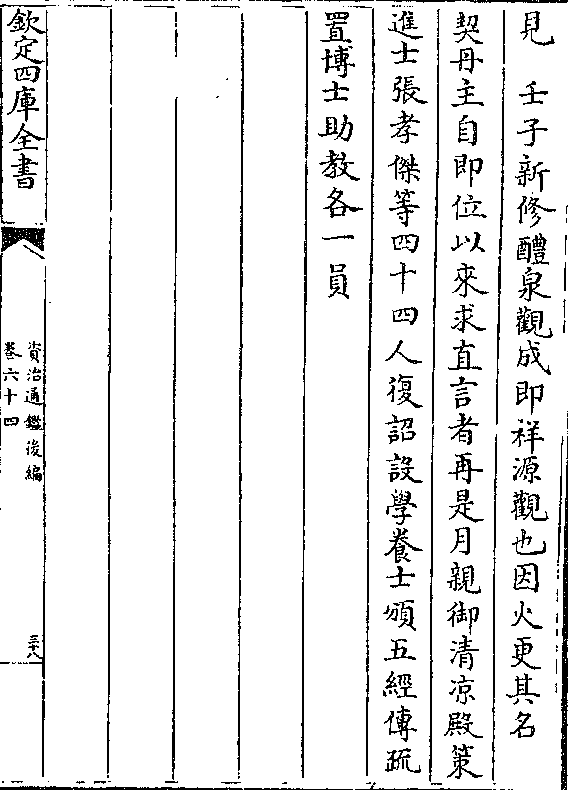 見　壬子新修醴泉觀成即祥源觀也因火更其名
契丹主自即位以來求直言者再是月親御清凉殿策
進士張孝傑等四十四人復詔設學養士頒五經傳疏
置博士助教各一員
欽定四庫全書
資治通鑑後編
卷六十四
三十八